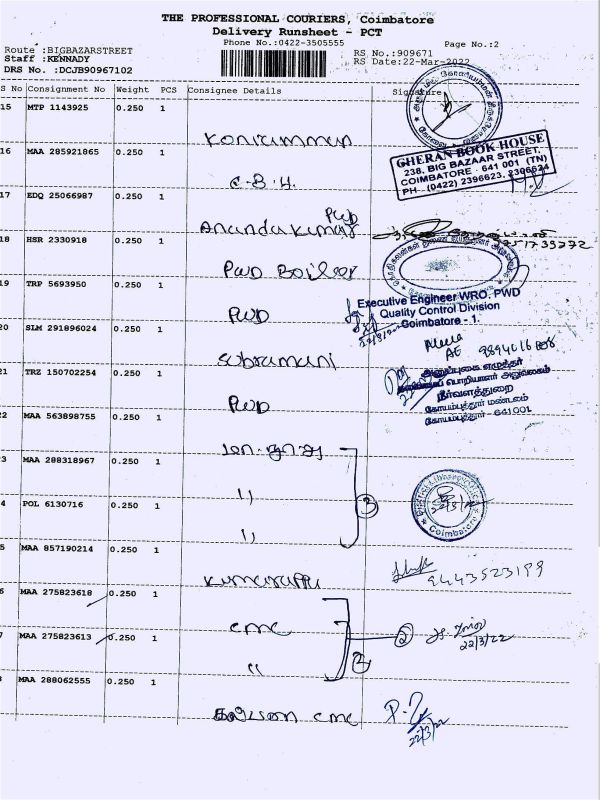 THE PROFESSIONAL COURIERS, Coimbatore
Delivery Runsheet - PCT
Phone No.:0422-3505555
Page No.:2
Route :BIGBAZARSTREET
Staff :KENNADY
DRS No. :DCJB90967102
RS No.:909671
RS Date:22-Mar-2022
S No Consignment No Weight PCS Consignee Details Signature
15 MTP 1143925 0.250 1
Koniamman
GHERAN BOOK HOUSE
238, BIG BAZAAR STREET,
COIMBATORE - 641 001 (TN)
PH : (0422) 2396623, 2306524
16 MAA 285921865 0.250 1
C.B.H.
17 EDQ 25066987 0.250 1
PWD
Anandakumar
18 HSR 2330918 0.250 1
PWD Boiler
19 TRP 5693950 0.250 1
PWD
Executive Engineer WRO. PWD
Quality Control Division
Coimbatore - 1.
22/3/22
20 SLM 291896024 0.250 1
Subramani
AE
21 TRZ 150702254 0.250 1
PWD
கண்காணிப்பு பொறியாளர் அலுவலகம்
நீர்வளத்துறை
கோயம்புத்தூர் மண்டலம்
கோயம்புத்தூர் - 641001
22 MAA 563898755 0.250 1
3 MAA 288318967 0.250 1
"
3
4 POL 6130716 0.250 1
"
22/3/22
Coimbatore
5 MAA 857190214 0.250 1
Kumarappa
9443523199
6 MAA 275823618 0.250 1
CMC
2
22/3/22
7 MAA 275823613 0.250 1
"
2
8 MAA 288062555 0.250 1
CMC
22/3/22